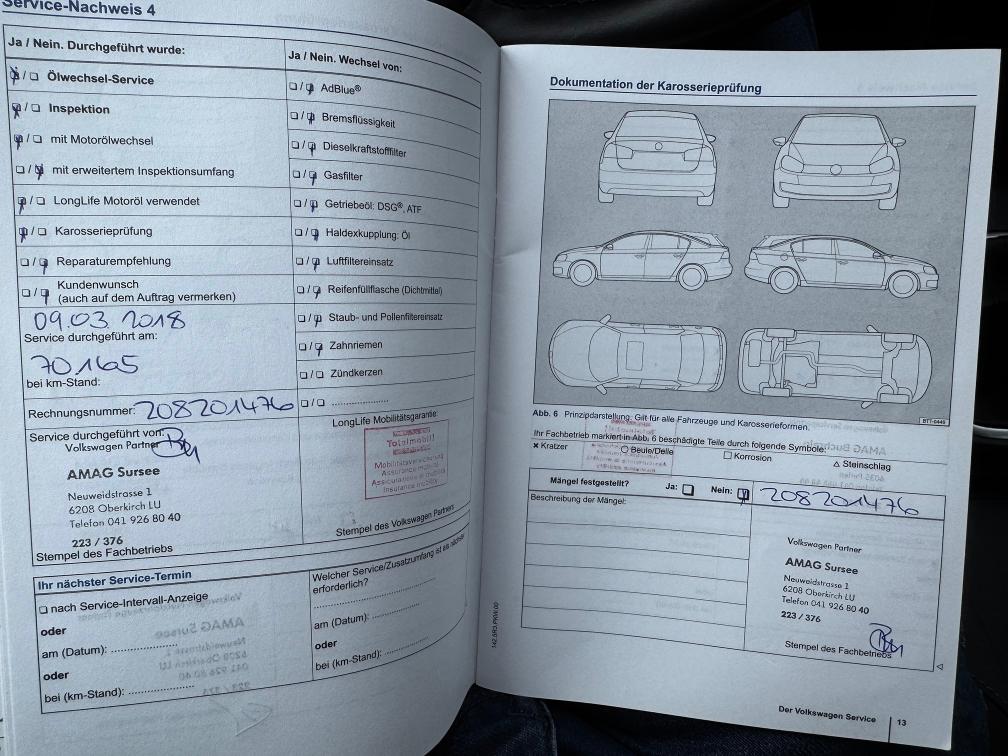 Service-Nachweis 4
Ja / Nein. Durchgeführt wurde:
Ölwechsel-Service
Inspektion
mit Motorölwechsel
mit erweitertem Inspektionsumfang
LongLife Motoröl verwendet
Karosserieprüfung
Reparaturempfehlung
Kundenwunsch
(auch auf dem Auftrag vermerken)
09.03.2018
Service durchgeführt am:
70.165
bei km-Stand:
Rechnungsnummer: 208201476
Service durchgeführt von:
Volkswagen Partner
AMAG Sursee
Neuweidstrasse 1
6208 Oberkirch LU
Telefon 041 926 80 40
223 / 376
Stempel des Fachbetriebs
Ja / Nein. Wechsel von:
AdBlue®
Bremsflüssigkeit
Dieselkraftstofffilter
Gasfilter
Getriebeöl: DSG®, ATF
Haldexkupplung: Öl
Luftfiltereinsatz
Reifenfüllflasche (Dichtmittel)
Staub- und Pollenfiltereinsatz
Zahnriemen
Zündkerzen
LongLife Mobilitätsgarantie:
Totalmobil!
Mobilitätsversicherung
Assurance mobilité
Assicurazione di mobilità
Insurance mobility
Stempel des Volkswagen Partners
Ihr nächster Service-Termin
nach Service-Intervall-Anzeige
oder
am (Datum):
oder
bei (km-Stand):
Welcher Service/Zusatzumfang ist als nächster
erforderlich?
am (Datum):
oder
bei (km-Stand):
Dokumentation der Karosserieprüfung
BTT-0449
Abb. 6 Prinzipdarstellung: Gilt für alle Fahrzeuge und Karosserieformen.
Ihr Fachbetrieb markiert in Abb. 6 beschädigte Teile durch folgende Symbole:
× Kratzer ○ Beule/Delle □ Korrosion △ Steinschlag
Mängel festgestellt? Ja: Nein: 208201476
Beschreibung der Mängel:
Volkswagen Partner
AMAG Sursee
Neuweidstrasse 1
6208 Oberkirch LU
Telefon 041 926 80 40
223 / 376
Stempel des Fachbetriebs
142.5R3.PKW.00
Der Volkswagen Service 13